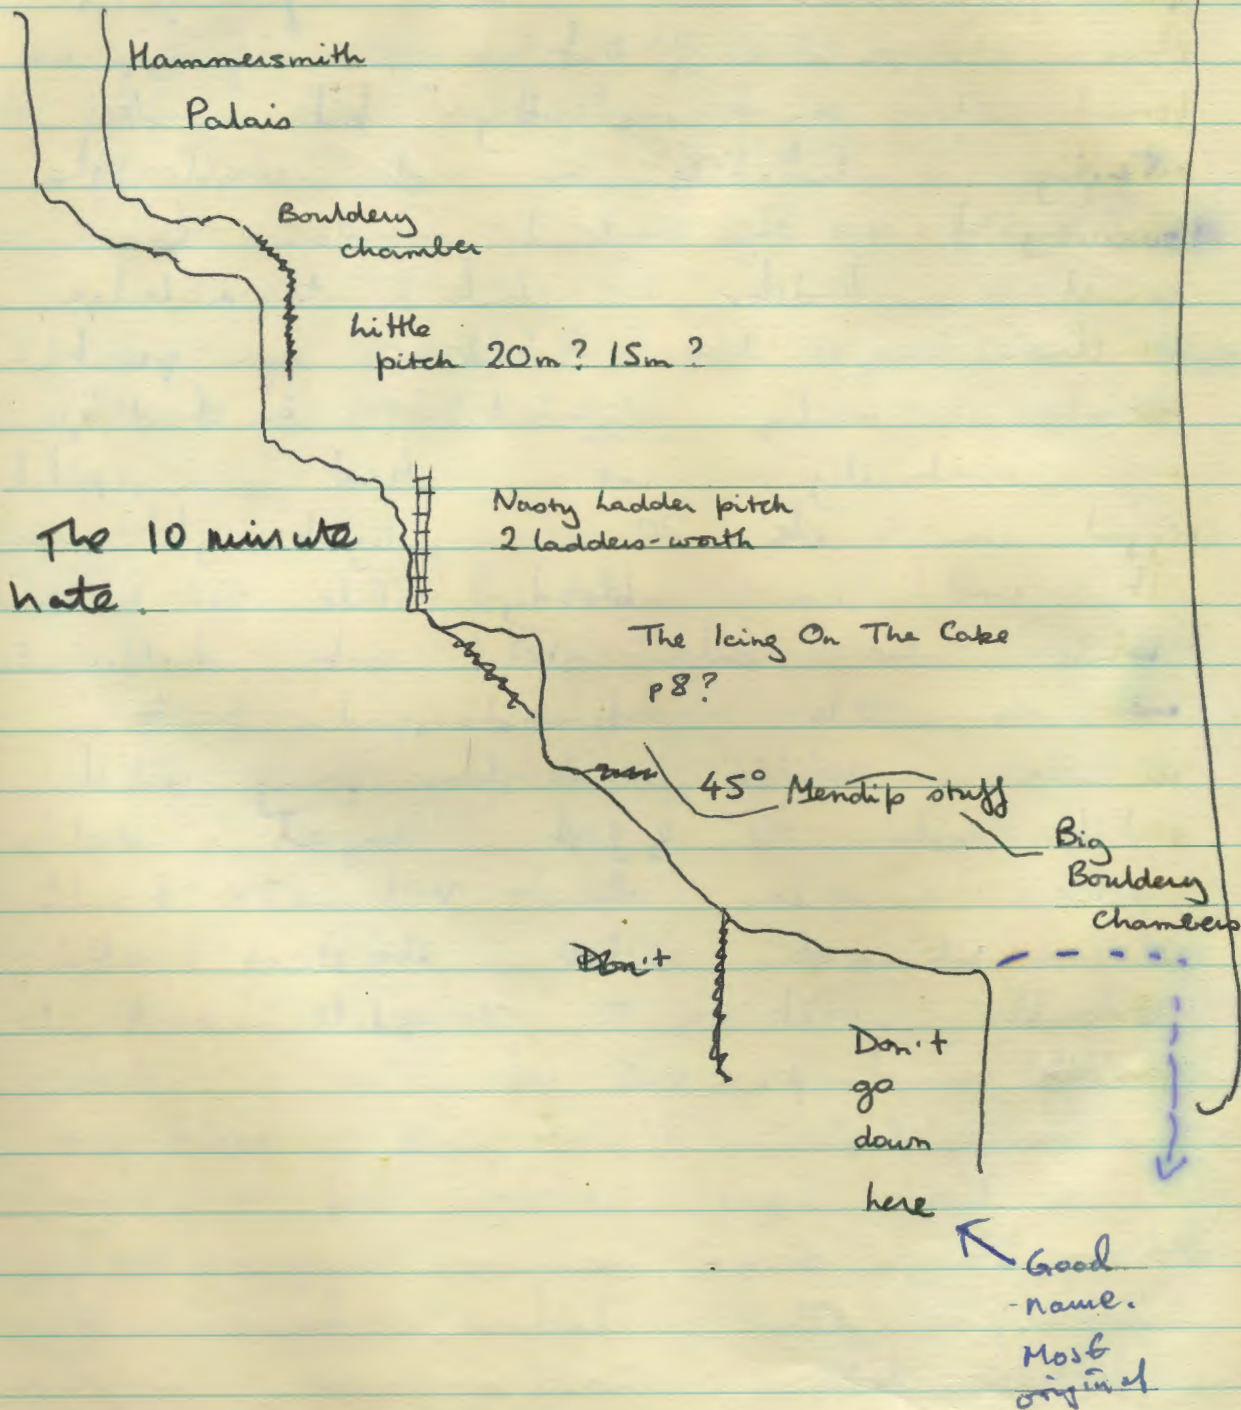 Hammersmith
Palais
Bouldery
chamber
Little
pitch 20m? 15m?
Nasty Ladder pitch
2 ladders-worth
The 10 minute
hate.
The Icing On The Cake
p8?
45° Mendip stuff
Big
Bouldery
Chambers
Don't
Don't
go
down
here
Good
name.
Most
original